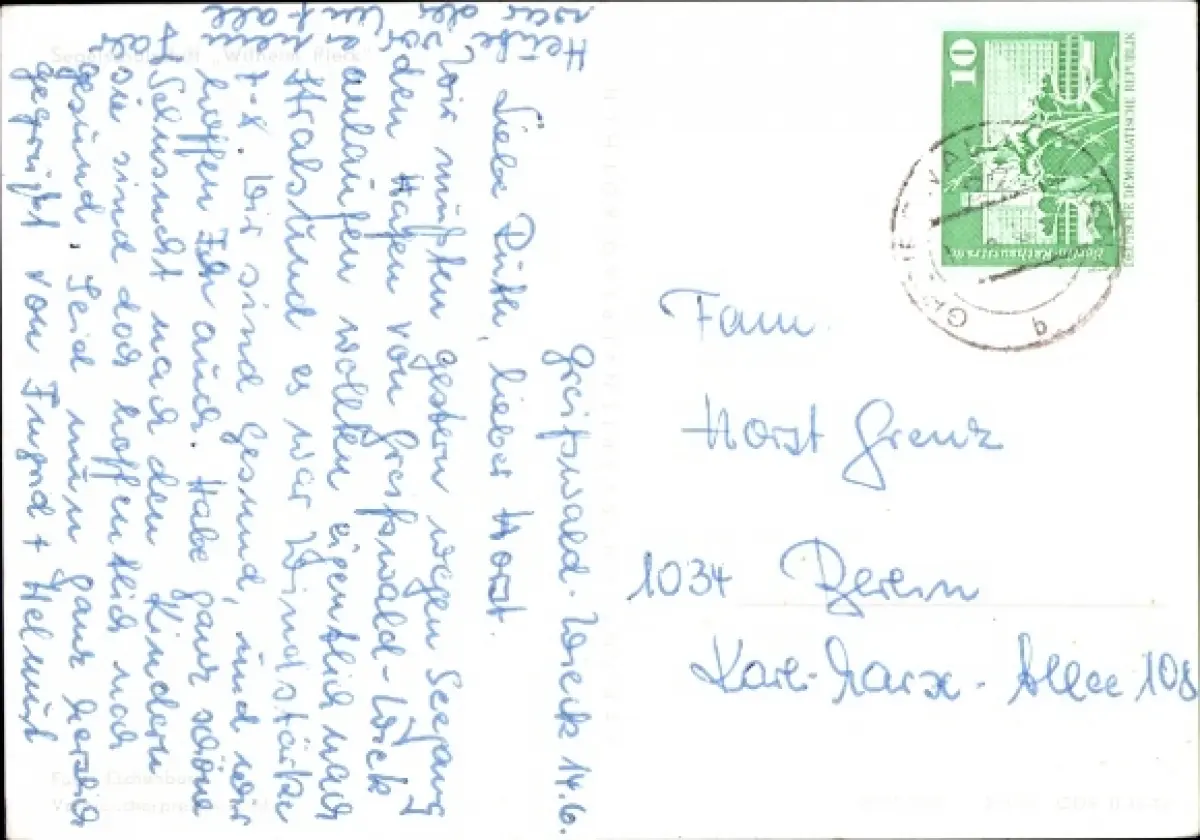 Segelschulschiff „Wilhelm Pieck"
Greifswald-Wieck 14.6.
Liebe Ruth, lieber Horst.
Wir mußten gestern wegen Seegang
den Hafen von Greifswald-Wieck
anlaufen wollten eigentlich nach
Stralsund es war Windstärke
7-8. Wir sind gesund, und wir
hoffen Ihr auch. Habe ganz schöne
Sehnsucht nach den Kindern
sie sind doch hoffentlich noch
gesund. Seid nun ganz herzlich
gegrüßt von Ingrid + Helmut
10
DEUTSCHE DEMOKRATISCHE REPUBLIK
Berlin-Rathausstraße
b
Fam.
Horst Grenz
1034 Berlin
Karl-Marx-Allee 108